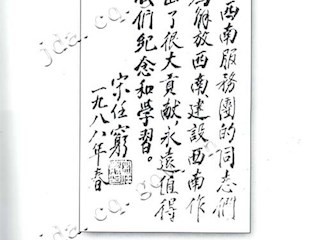 西南服務團的同志們
為解放西南建設西南作
出了很大貢献,永遠值得
我们纪念和学習。
宋任窮
一九八八年春